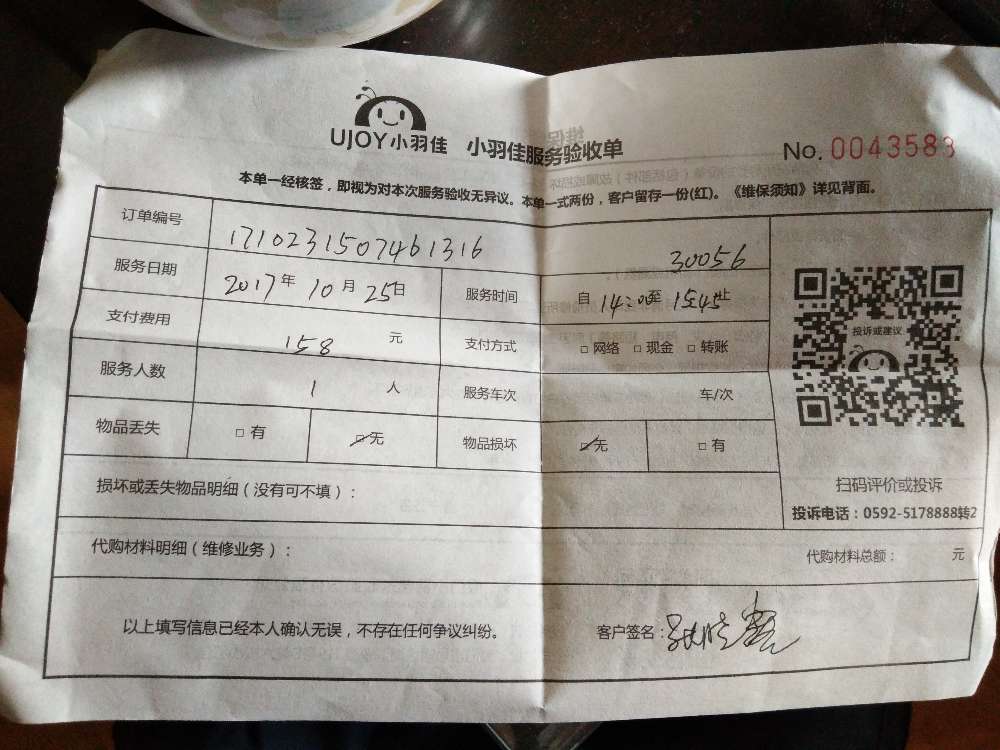 UJOY小羽佳 小羽佳服务验收单 No. 0043583
本单一经核签，即视为对本次服务验收无异议。本单一式两份，客户留存一份(红)。《维保须知》详见背面。
订单编号 1710231507461316 30056
服务日期 2017年10月25日 服务时间 自14:00至15:45止
支付费用 158 元 支付方式 □网络 □现金 □转账
投诉或建议
服务人数 1 人 服务车次 车/次
物品丢失 □有 ☑无 物品损坏 ☑无 □有
损坏或丢失物品明细（没有可不填）：
扫码评价或投诉
投诉电话：0592-5178888转2
代购材料明细（维修业务）： 代购材料总额： 元
以上填写信息已经本人确认无误，不存在任何争议纠纷。 客户签名：